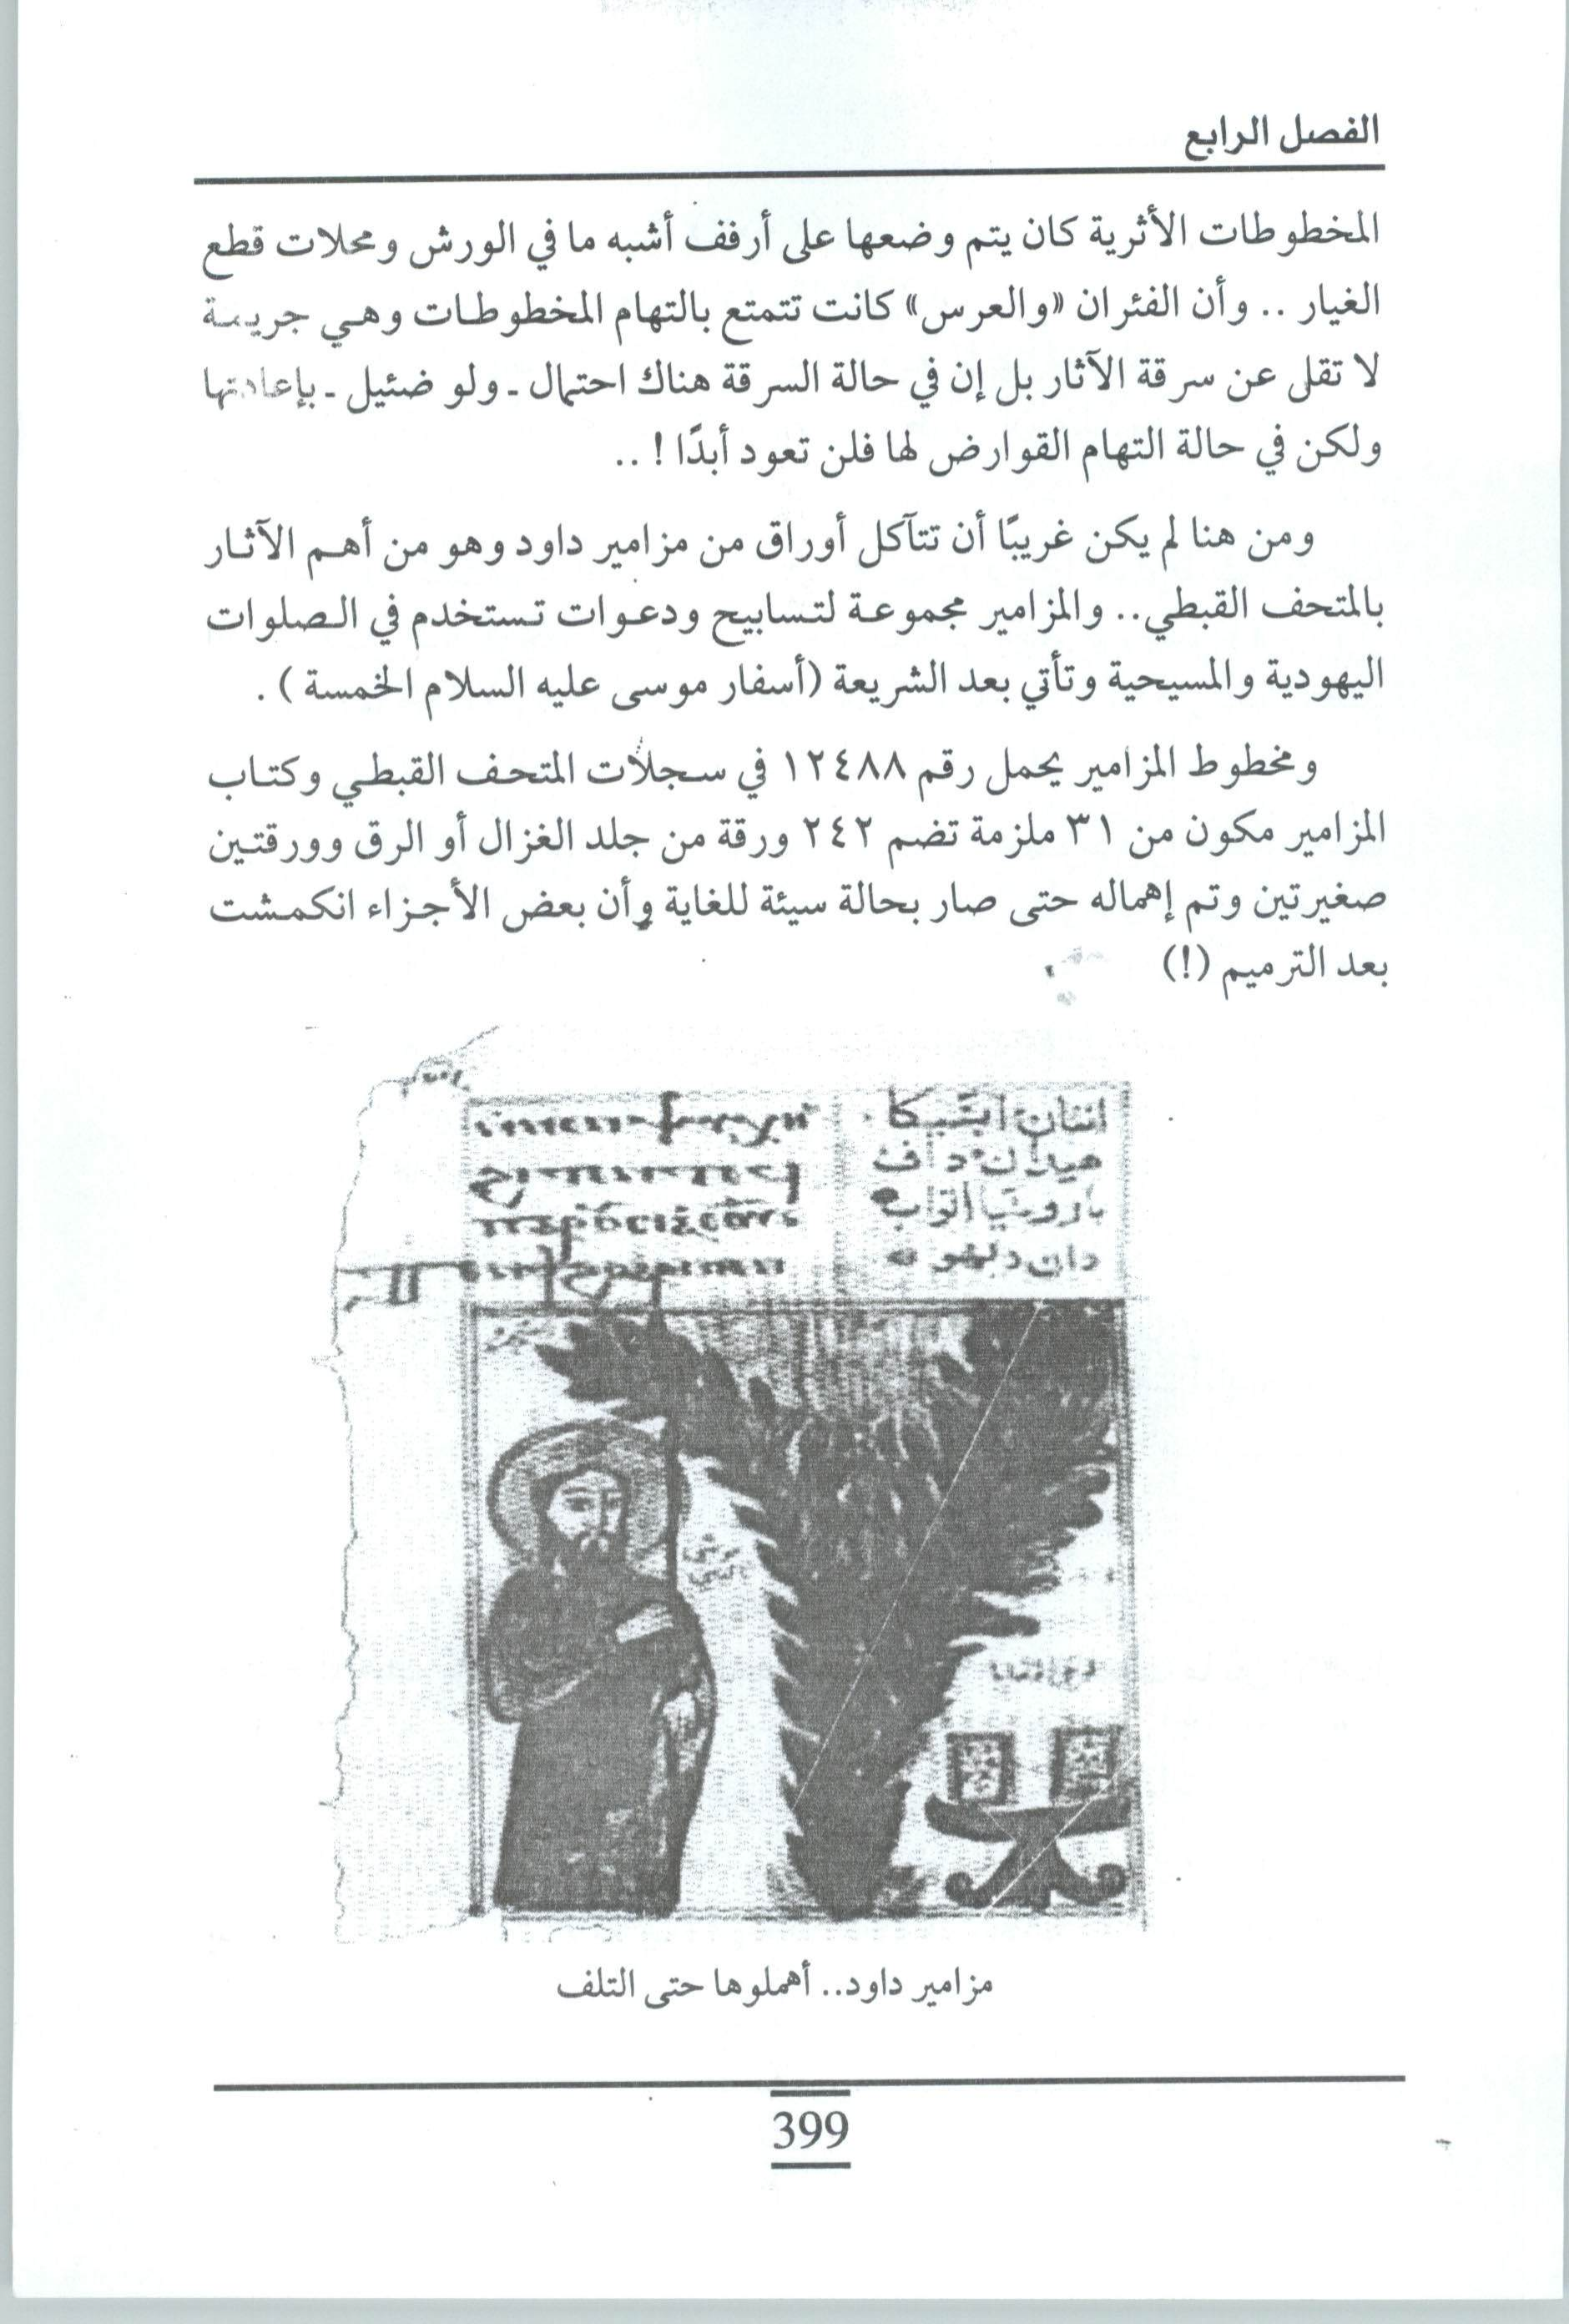 الفصل الرابع
المخطوطات الأثرية كان يتم وضعها على أرفف أشبه ما في الورش ومحلات قطع
الغيار .. وأن الفئران «والعرس» كانت تتمتع بالتهام المخطوطات وهي جريمة
لا تقل عن سرقة الآثار بل إن في حالة السرقة هناك احتمال ـ ولو ضئيل ـ بإعادتها
ولكن في حالة التهام القوارض لها فلن تعود أبدًا ! ..
ومن هنا لم يكن غريبًا أن تتآكل أوراق من مزامير داود وهو من أهم الآثار
بالمتحف القبطي.. والمزامير مجموعة لتسابيح ودعوات تستخدم في الصلوات
اليهودية والمسيحية وتأتي بعد الشريعة (أسفار موسى عليه السلام الخمسة ) .
ومخطوط المزامير يحمل رقم ١٢٤٨٨ في سجلات المتحف القبطي وكتاب
المزامير مكون من ٣١ ملزمة تضم ٢٤٢ ورقة من جلد الغزال أو الرق وورقتين
صغيرتين وتم إهماله حتى صار بحالة سيئة للغاية وأن بعض الأجزاء انكمشت
بعد الترميم (!)
مزامير داود.. أهملوها حتى التلف
399